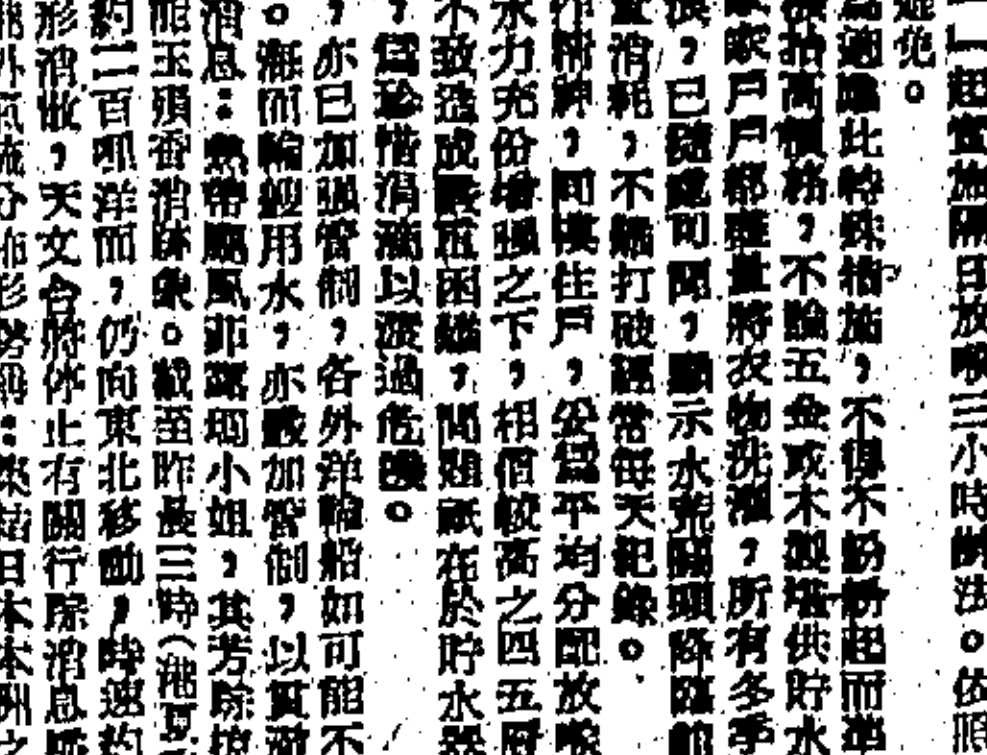 一起實施隔日放喉三小時辦法。依照
避免。
爲適應此特殊措施，不得不紛紛起而消
價抬高價格，不論五金或木製塔供貯水
家家戶戶都盡量將衣物洗濯，所有多季
，已隨處可聞，顯示水荒關頭降臨
量消耗，不斷打破經常每天紀錄。
作精神，同樓住戶，爲平均分配放喉
水力充份增强之下，相信較高之四五層
不致造成嚴重困難，問題祇在於貯水器
，爲珍惜涓滴以渡過危機。
，亦已加强管制，各外洋輪船如可能不
。海面輪艘用水，亦嚴加管制，以實
消息：熱帶颶風菲露瑪小姐，其芳踪
能玉殞香消跡象。截至昨晨三時（港夏
約二百哩洋面，仍向東北移動，時速約
形消散，天文台將休止有關行踪消息
外氣流分佈形勢爲：日本本洲之